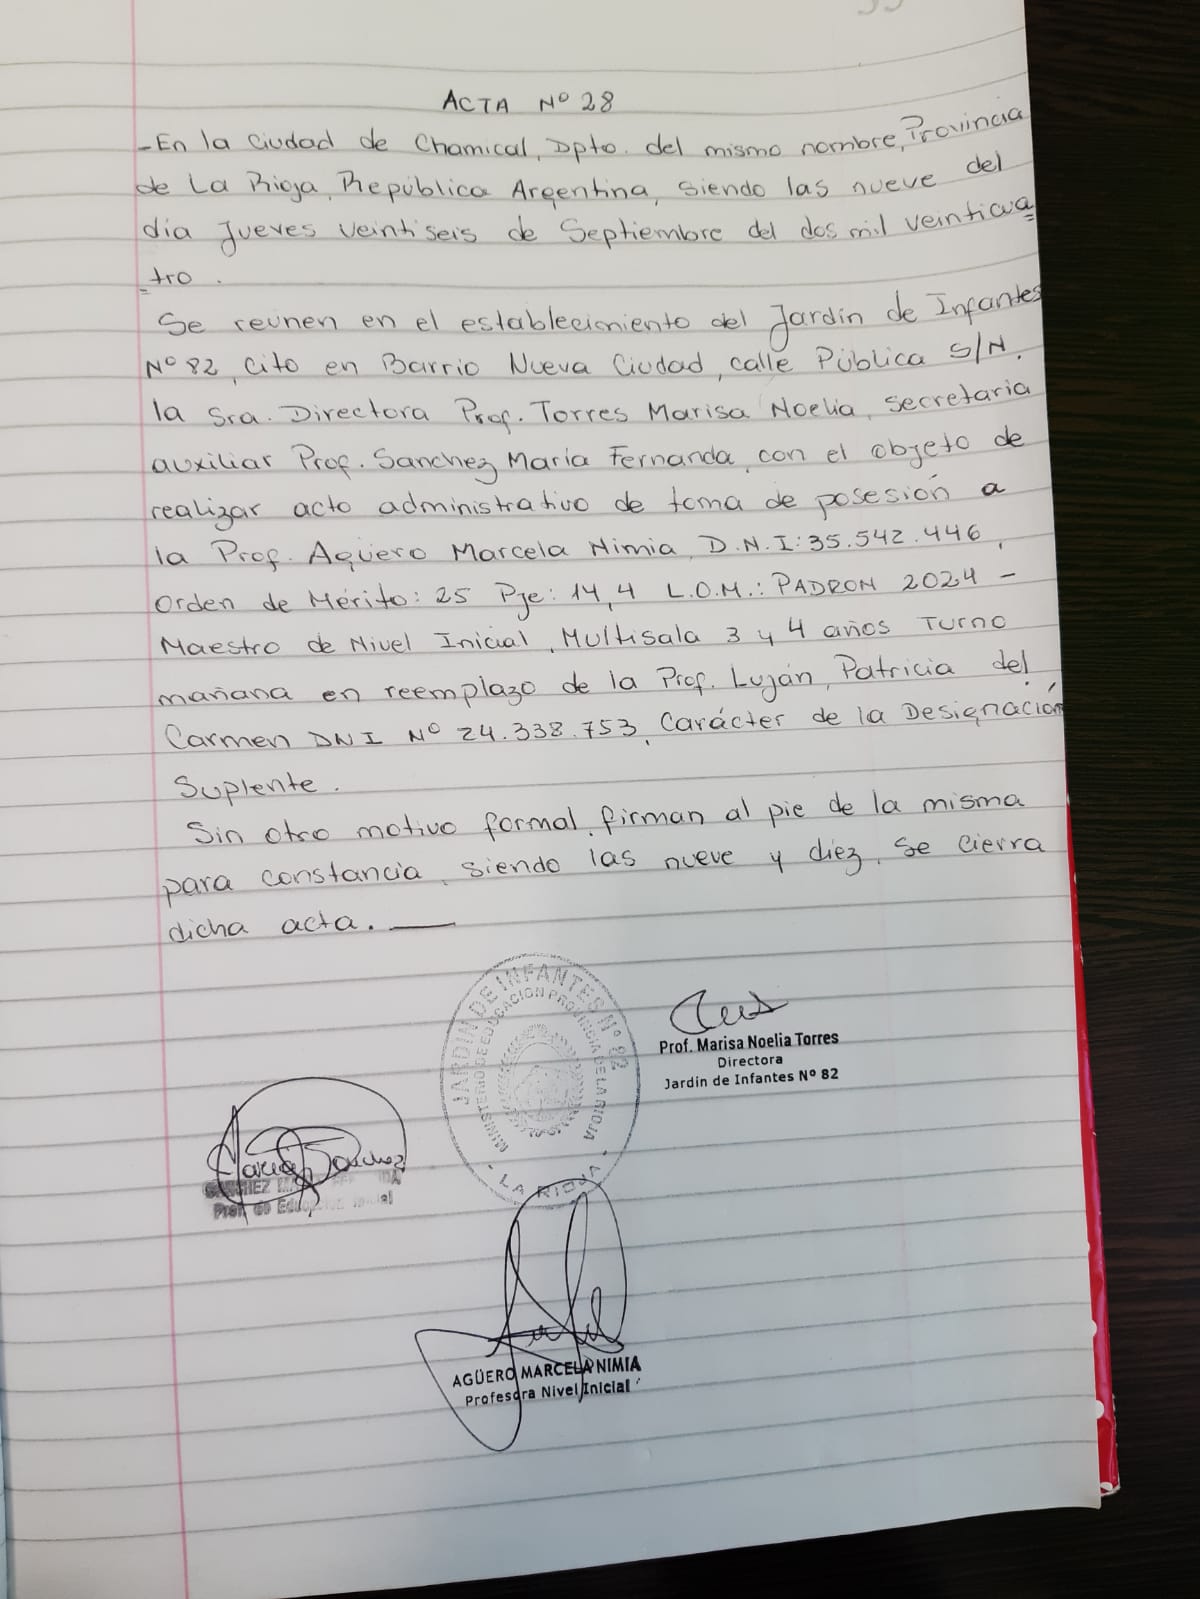 ACTA Nº 28
-En la Ciudad de Chamical, Dpto. del mismo nombre, Provincia
de La Rioja, República Argentina, siendo las nueve del
día Jueves veintiseis de Septiembre del dos mil veinticua
tro.
Se reunen en el establecimiento del Jardín de Infantes
Nº 82, Cito en Barrio Nueva Ciudad, calle Pública S/N.
la Sra. Directora Prof. Torres Marisa Noelia, secretaria
auxiliar Prof. Sanchez María Fernanda, con el objeto de
realizar acto administrativo de toma de posesión a
la Prof. Agüero Marcela Nimia, D.N.I: 35.542.446,
Orden de Mérito: 25 Pje: 14,4 L.O.M.: PADRON 2024 -
Maestro de Nivel Inicial, Multisala 3 y 4 años Turno
mañana en reemplazo de la Prof. Luján, Patricia del
Carmen DNI Nº 24.338.753, Carácter de la Designación
Suplente.
Sin otro motivo formal, firman al pie de la misma
para constancia, siendo las nueve y diez, se cierra
dicha acta.
JARDIN DE INFANTES Nº 82
MINISTERIO DE EDUCACION PROVINCIA DE LA RIOJA
· LA RIOJA ·
Prof. Marisa Noelia Torres
Directora
Jardin de Infantes Nº 82
María F Sanchez
Prof. de Educación Inicial
AGÜERO MARCELA NIMIA
Profesora Nivel Inicial